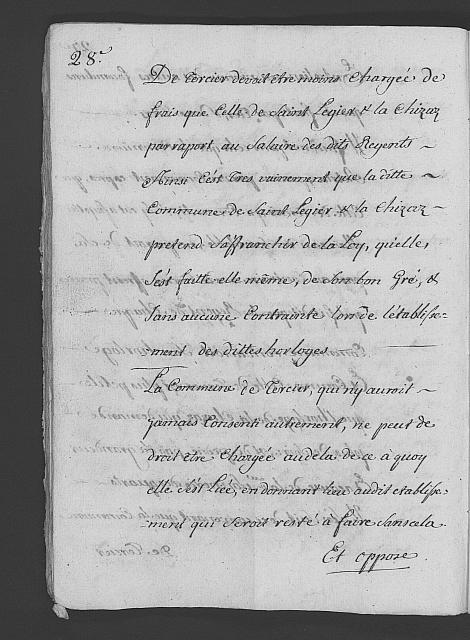 28.
De Tercier devoit être moins Chargée de
frais que Celle de Saint Legier & la Chizaz
par raport au Salaire des dits Regents ~
Ainsi C'est Tres vainement que la ditte ~
Commune de Saint Legier & la Chizaz ~
pretend S'affranchir de la Loy, qu'elle,
S'est faitte elle même, de son bon Gré, &
Sans aucune Contrainte lorr de l'établisse=
=ment des dittes horloges
La Commune de Tercier, qui n'y auroit ~
jamais Consenti autrement, ne peut de
droit être Chargée au dela de ce à quoy
elle s'est Liée, en donnant lieu audit etablisse=
=ment qui Seroit resté à faire Sans cela
Et oppose